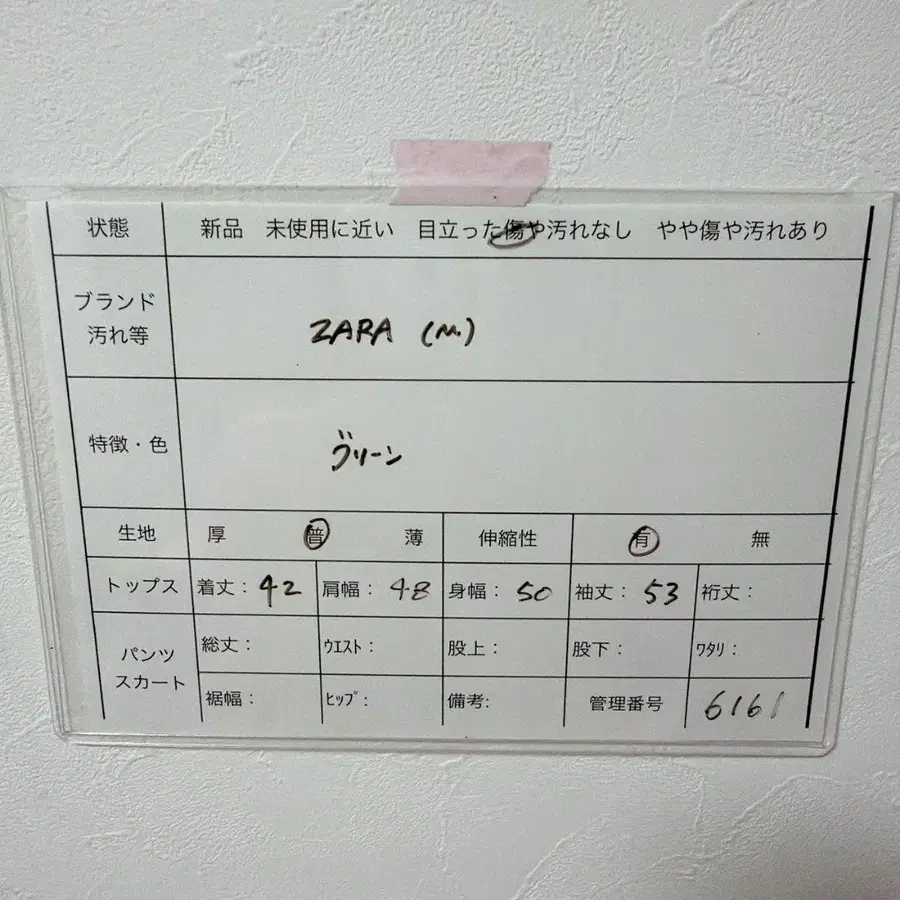 状態 新品 未使用に近い 目立った傷や汚れなし やや傷や汚れあり
ブランド
汚れ等
ZARA (M.)
特徴・色 グリーン
生地 厚 普 薄 伸縮性 有 無
トップス 着丈: 42 肩幅: 48 身幅: 50 袖丈: 53 裄丈:
パンツ
スカート
総丈: ウエスト: 股上: 股下: ワタリ:
裾幅: ヒップ: 備考: 管理番号 6161